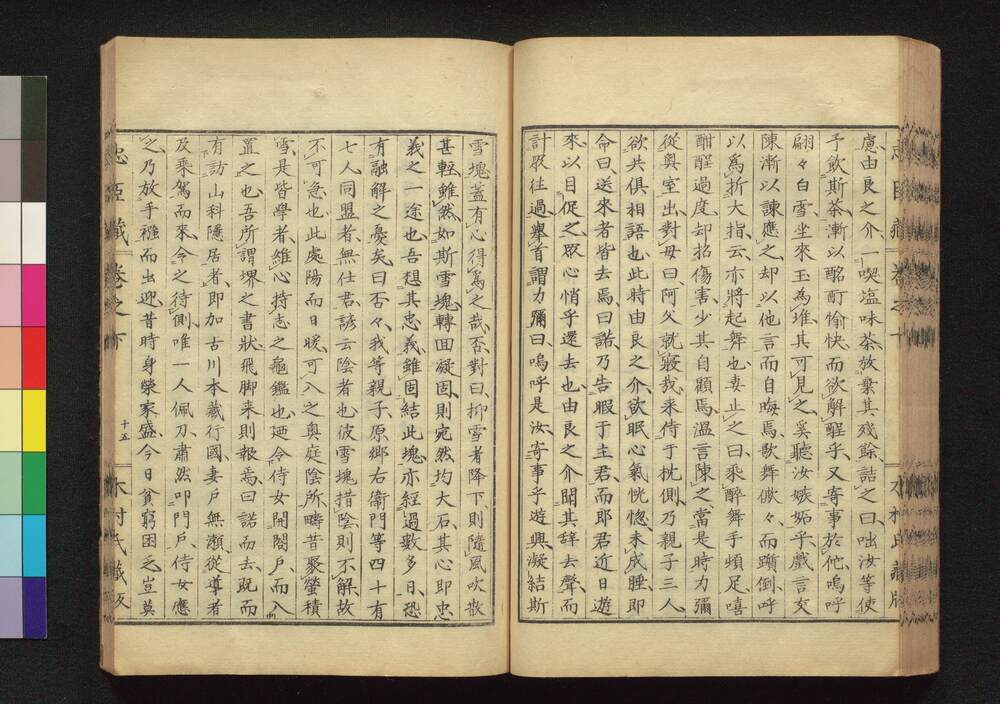 慮由良之介一喫塩味茶放棄其殘餘詰之曰咄汝等使
予飲斯茶漸以酩酊愉快而欲解酲乎又寄事於他嗚呼
翩々白雪坐來玉為堆其可見之奚聽汝嫉妬乎戲言交
陳漸以諫應之却以他言而自晦焉歌舞僛々而躓倒呼
以爲折大指云亦將起舞也妻止之曰乘醉舞手頓足嘻
酣酲過度却招傷害少其自顧焉温言陳之當是時力彌
從奥室出對母曰阿父就寢我来侍于枕側乃親子三人
欲共倶相語也此時由良之介欲眠心氣恍惚未成睡即
命曰送來者皆去焉曰諾乃告暇于主君而郎君近日遊
來以目促之眾心悄乎還去也由良之介聞其辞去聲而
計眾往過舉首謂力彌曰嗚呼是汝寄事乎遊興凝結斯
雪塊蓋有心得爲之哉否對曰抑雪者降下則隨風吹散
甚輕雖然如斯雪塊轉回凝固則宛然均大石其心即忠
義之一途也吾想其忠義雖固結此塊亦經過數多日恐
有融解之憂矣曰否々我等親子原郷右衞門等四十有
七人同盟者無仕君諺云陰者也彼雪塊措陰則不解故
不可急也此處陽而日暖可入之奥庭陰所疇昔聚螢積
雪是皆學者維心持志之龜鑑也廼令侍女開閤戸而入
置之也吾所謂堺之書狀飛脚来則報焉曰諾而去既而
有訪山科隱居者即加古川本藏行國妻戸無瀬從導者
及乘駕而來令之待側唯一人佩刀肅然叩門戸侍女應
之乃放手襁而出迎昔時身榮家盛今日貧窮困乏豈莫
忠臣藏 卷之下 十五 木村氏藏版